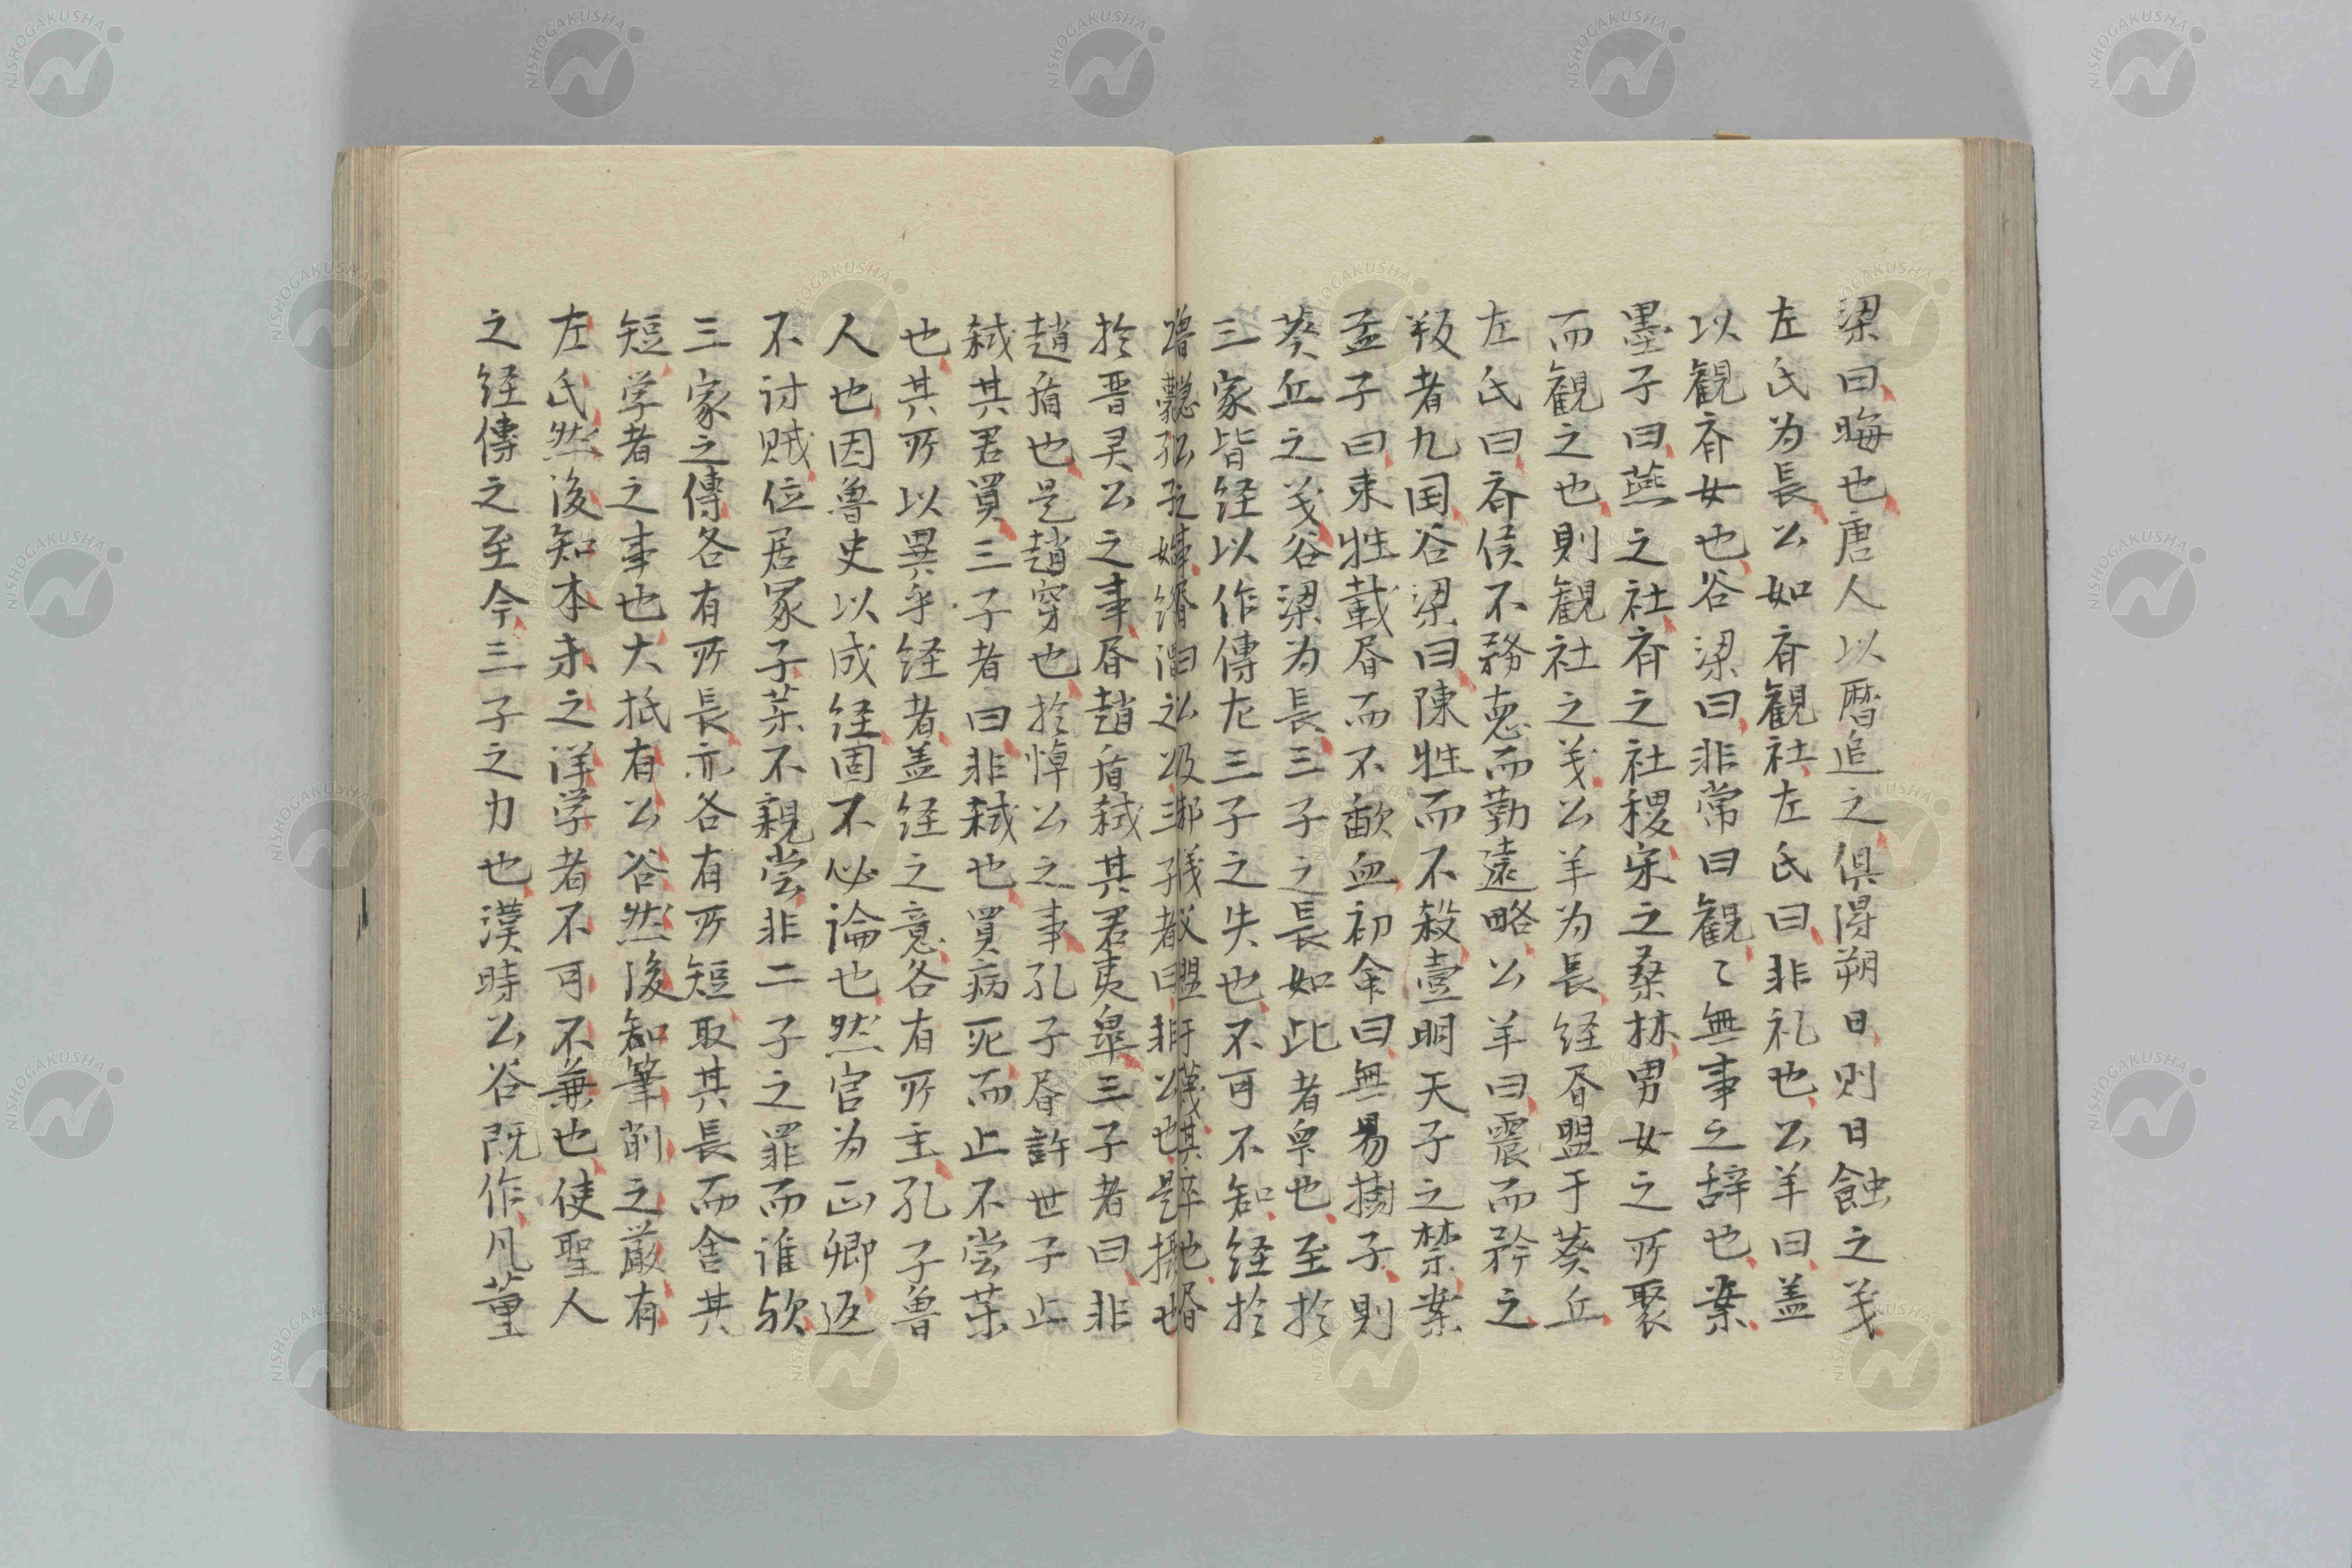 梁曰晦也唐人以暦追之俱得朔日則日蝕之義
左氏为長公如斉観社左氏曰非礼也公羊曰盖
以観斉女也谷梁曰非常曰観〻無事之辞也案
墨子曰燕之社斉之社稷宋之桑林男女之所聚
而観之也則観社之義公羊为長経書盟于葵丘
左氏曰斉侯不務徳而勤遠略公羊曰震而矜之
叛者九国谷梁曰陳牲而不殺壹明天子之禁案
孟子曰束牲載書而不歃血初命曰無易樹子則
葵丘之義谷梁为長三子之長如此者衆也至於
三家皆経以作傳尤三子之失也不可不知経於
於晋灵公之事書趙盾弑其君夷皐三子者曰非
趙盾也是趙穿也於悼公之事孔子書許世子止
弑其君買三子者曰非弑也買病死而止不尝薬
也其所以異乎経者盖経之意各有所主孔子魯
人也因魯史以成経固不必論也然官为正卿返
不討賊位居冢子薬不親尝非二子之罪而谁欤
三家之傳各有所長亦各有所短取其長而舎其
短学者之事也大抵有公谷然後知筆削之嚴有
左氏然後知本末之详学者不可不兼也使聖人
之経傳之至今三子之力也漢時公谷既作凡董